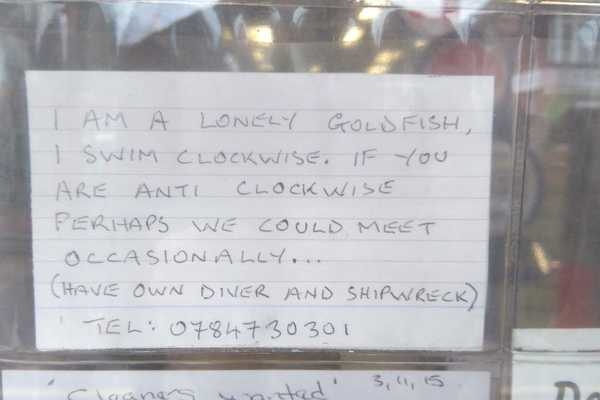 I AM A LONELY GOLDFISH,
I SWIM CLOCKWISE. IF YOU
ARE ANTI CLOCKWISE
PERHAPS WE COULD MEET
OCCASIONALLY...
(HAVE OWN DIVER AND SHIPWRECK)
TEL: 0784730301
'Cleaners wanted' 3,11,15